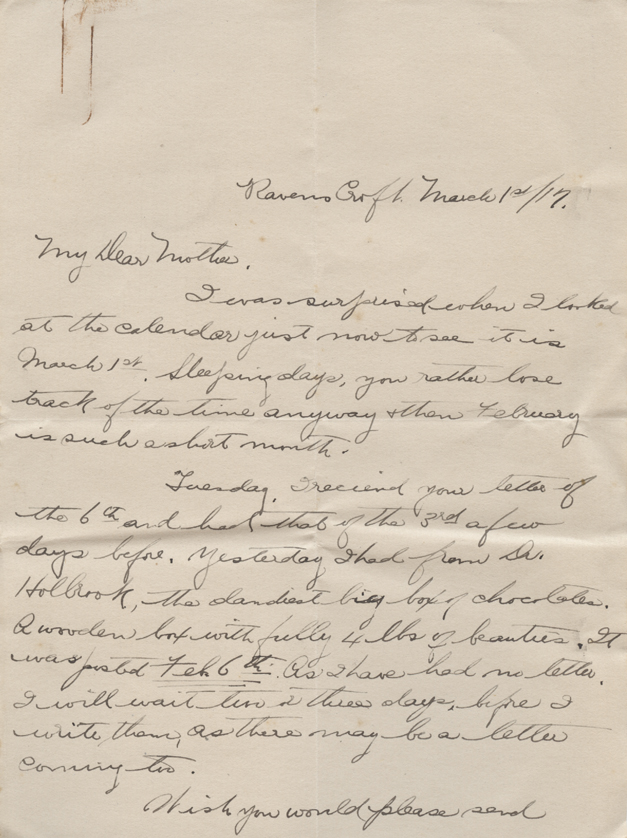 Ravens Croft. March 1st/17.
My Dear Mother.
I was surprised when I looked
at the calendar just now to see it is
March 1st. Sleeping days, you rather lose
track of the time anyway & then February
is such a short month.
Tuesday, I reciend your letter of
the 6th and had that of the 3rd a few
days before. Yesterday I had from Dr.
Holbrook, the dandiest big box of chocolates.
A wooden box with fully 4 lbs of beauties. It
was posted Feb 6th. As I have had no letter,
I will wait two or three days, before I
write them, as there may be a letter
coming too.
Wish you would please send